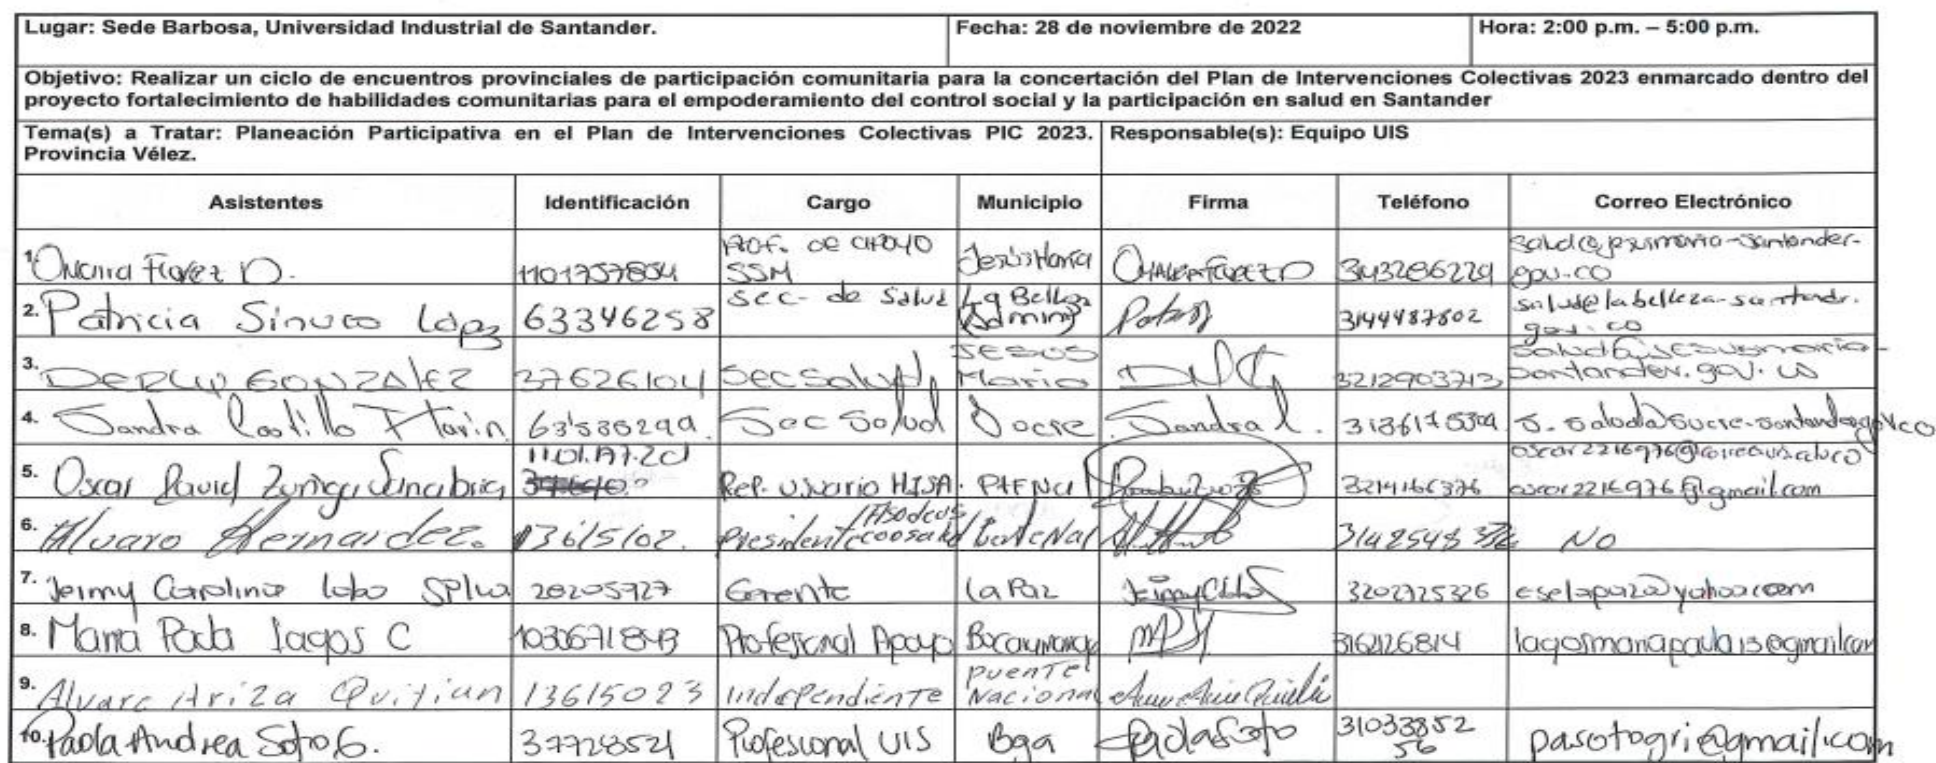 Lugar: Sede Barbosa, Universidad Industrial de Santander. Fecha: 28 de noviembre de 2022 Hora: 2:00 p.m. – 5:00 p.m.
Objetivo: Realizar un ciclo de encuentros provinciales de participación comunitaria para la concertación del Plan de Intervenciones Colectivas 2023 enmarcado dentro del
proyecto fortalecimiento de habilidades comunitarias para el empoderamiento del control social y la participación en salud en Santander
Tema(s) a Tratar: Planeación Participativa en el Plan de Intervenciones Colectivas PIC 2023. Responsable(s): Equipo UIS
Provincia Vélez.
Asistentes Identificación Cargo Municipio Firma Teléfono Correo Electrónico
1. Florez D. 1101757854 Prof. de apoyo SSM Jesús María 3143286229
2. Patricia Sinuco López 63346258 Sec. de Salud La Belleza 3144487802 salud@labelleza-santander.gov.co
3. GONZALEZ 37626104 Sec Salud JESUS Maria 3212903713 salud@jesusmaria-santander.gov.co
4. Sandra Castillo Marin 63'535299 Sec Salud Sucre Sandra
5. Oscar David Zuñiga Sanabria Rep. Usuario 3214166376 oscar2216976@gmail.com
6. Alvaro Hernandez. 13615102. Presidente 3142548 NO
7. Jeimy Carolina Lobo Silva 28205727 Gerente La Paz 3202725326 eselapaz@yahoo.com
8. Maria Paula Lagos C Profesional Apoyo Bucaramanga 316126814 lagosmariapaula13@gmail.com
9. Alvaro Ariza Quitian 13615023 Independiente Puente Nacional
10. Paola Andrea Soto G. 37728521 Profesional UIS Bga Paola Soto 3103385256 pasotogri@gmail.com